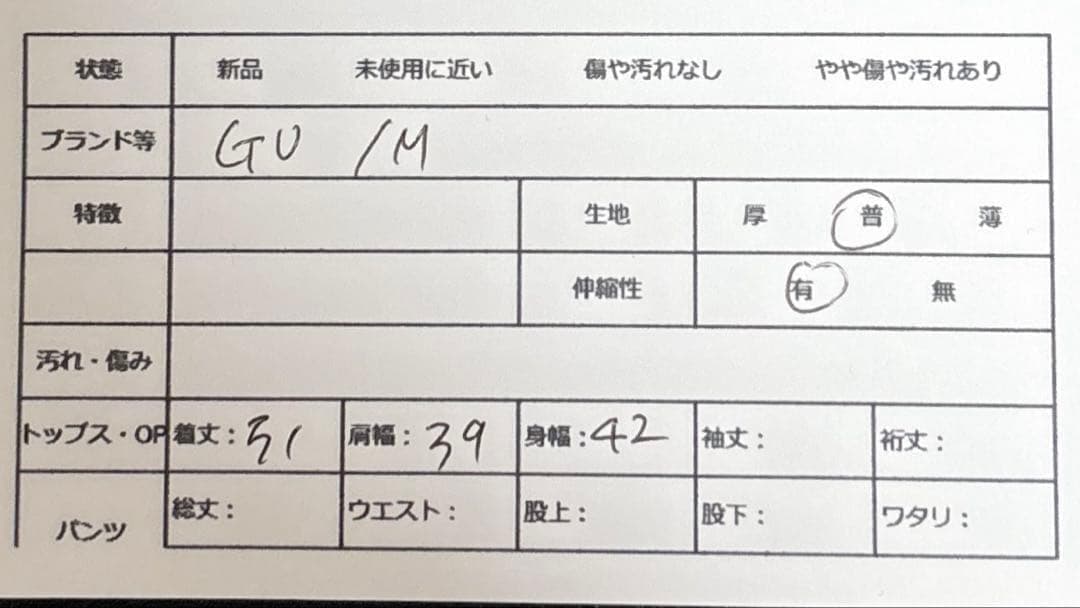 状態 新品 未使用に近い 傷や汚れなし やや傷や汚れあり
ブランド等 GU /M
特徴 生地 厚 普 薄
伸縮性 有 無
汚れ・傷み
トップス・OP 着丈：51 肩幅：39 身幅：42 袖丈： 裄丈：
パンツ 総丈： ウエスト： 股上： 股下： ワタリ：